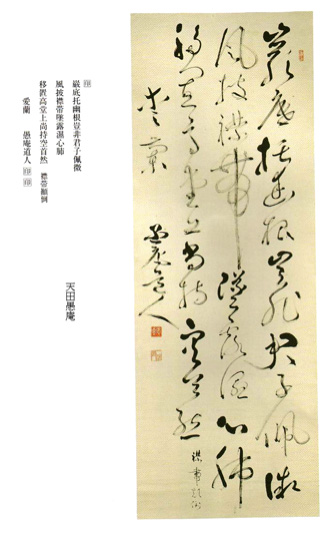 巌底托幽根豈非君子佩微
風披襟帯墜露濕心肺
移置高堂上尚持空首然 襟帯顛倒
愛蘭
愚庵道人
印
巌底托幽根豈非君子佩微
風披襟帯墜露濕心肺
移置高堂上尚持空首然 襟帯顛倒
愛蘭 愚庵道人 印 印
天田愚庵